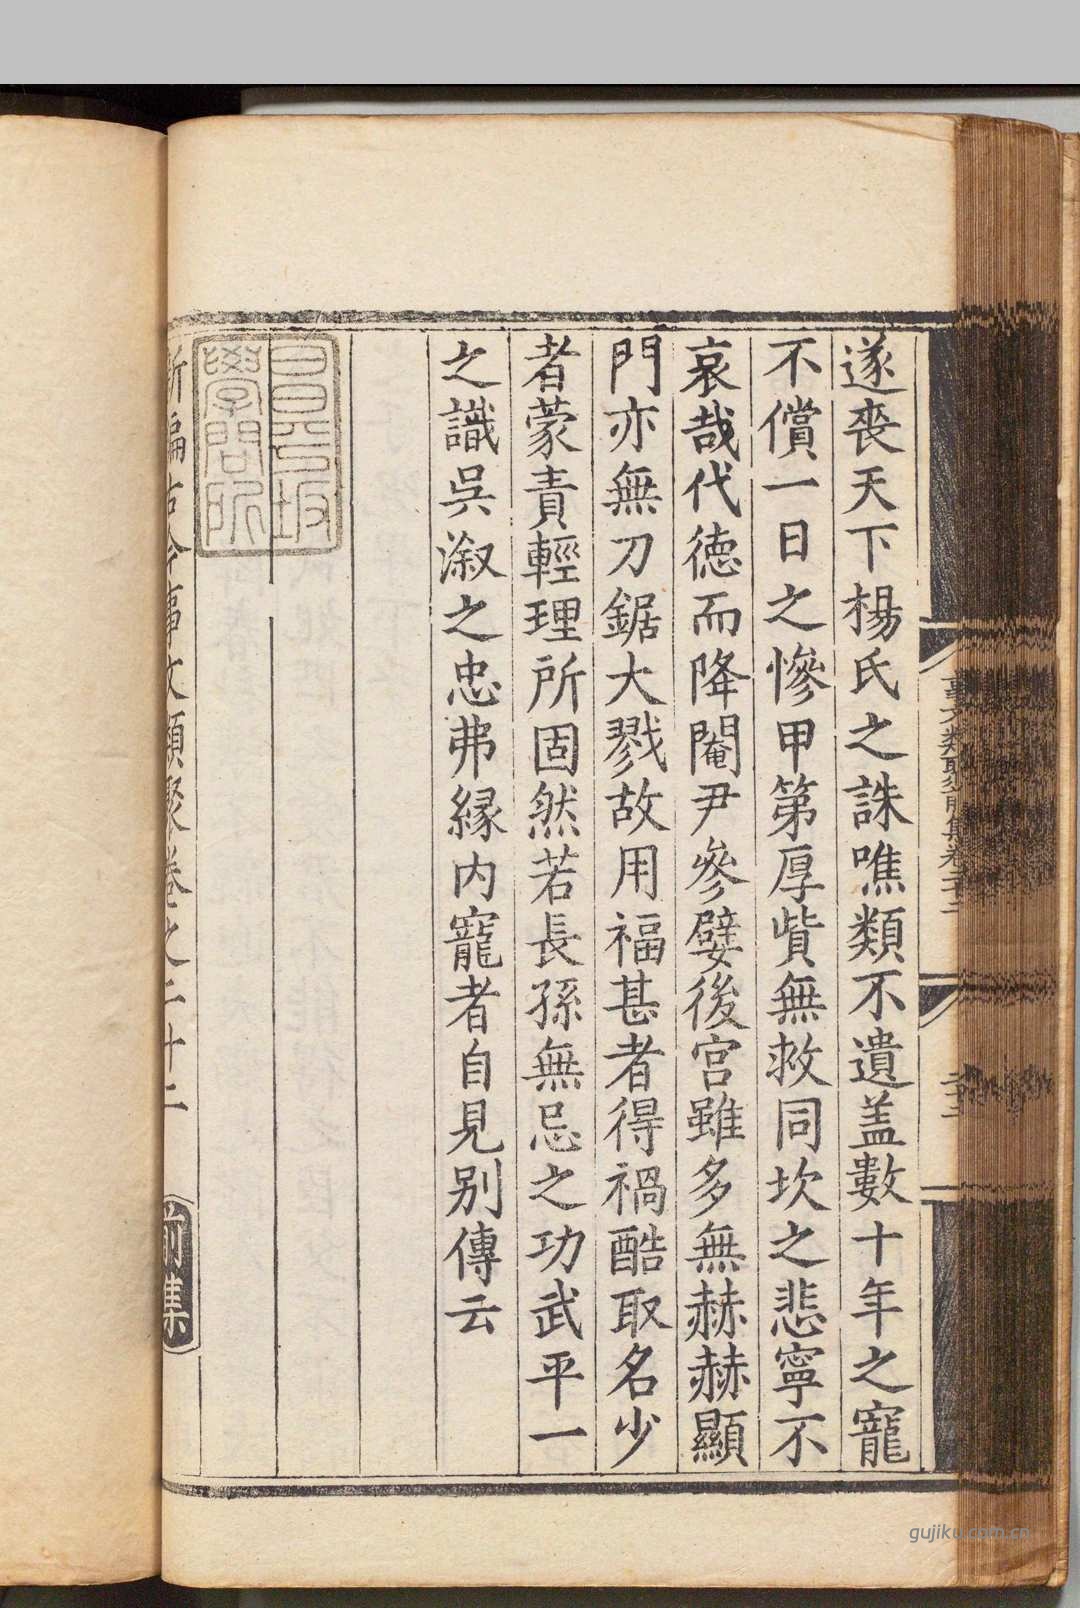 遂喪天下楊氏之誅噍類不遺盖數十年之寵
不償一日之慘甲第厚貲無救同坎之悲寧不
哀哉代德而降閹尹參嬖後宮雖多無赫赫顯
門亦無刀鋸大戮故用福甚者得禍酷取名少
者蒙責輕理所固然若長孫無忌之功武平一
之識吳溆之忠弗緣内寵者自見别傳云
昌平坂
學問所
新編古今事文類聚卷之二十二 前集
事文類聚前集卷二十二
gujiku.com.cn